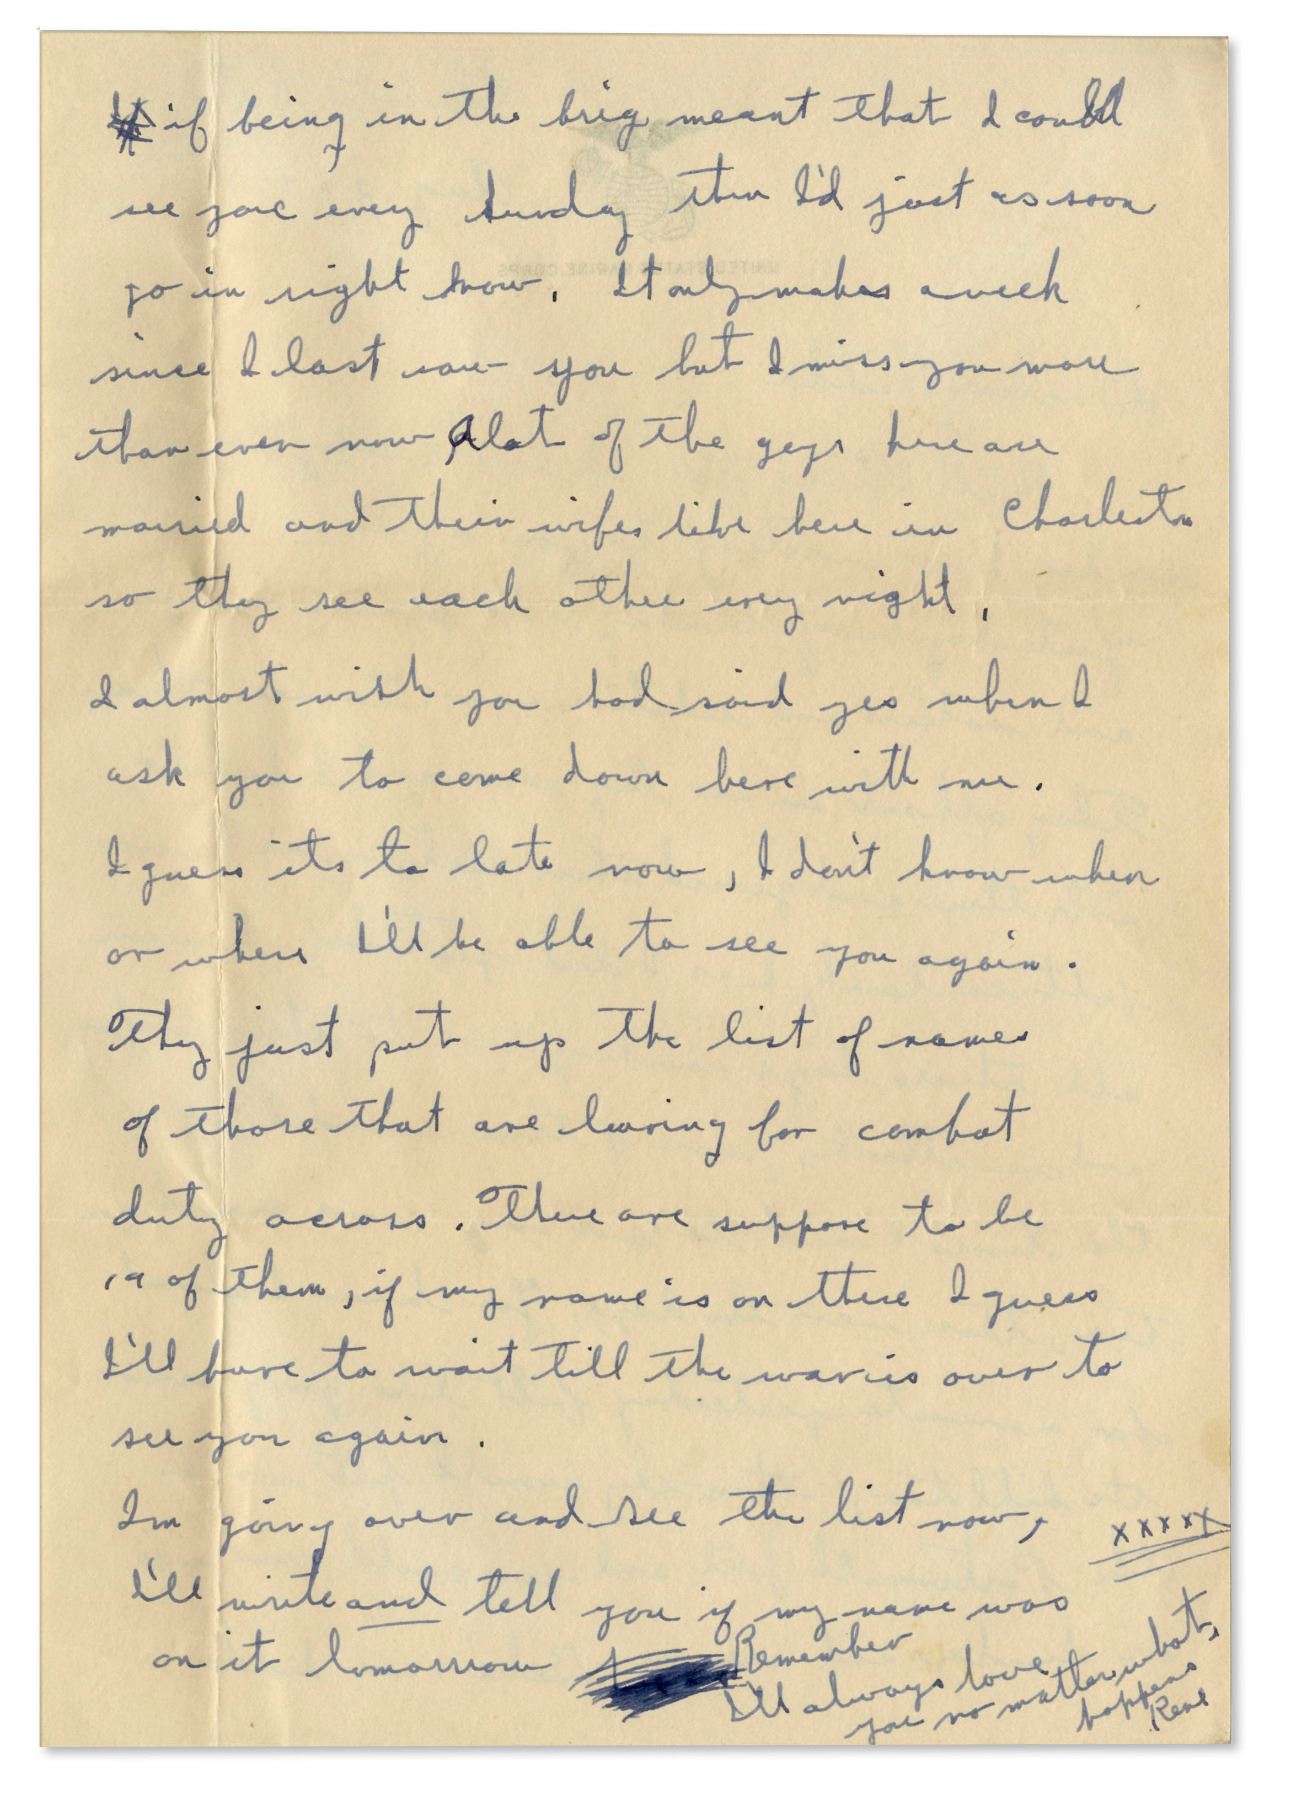 if being in the brig meant that I could
see you every Sunday then I'd just as soon
go in right know. It only makes a week
since I last saw you but I miss you more
than ever now Alot of the guys here are
married and their wifes live here in Charleston
so they see each other every night.
I almost wish you had said yes when I
ask you to come down here with me.
I guess its to late now, I don't know when
or where I'll be able to see you again.
They just put up the list of names
of those that are leaving for combat
duty across. There are suppose to be
19 of them, if my name is on there I guess
I'll have to wait till the war is over to
see you again.
Im going over and see the list now,
xxxxx
I'll write and tell you if my name was
on it tomorrow
Remember
I'll always love
you no matter what,
happens
Rene
UNITED STATES MARINE CORPS